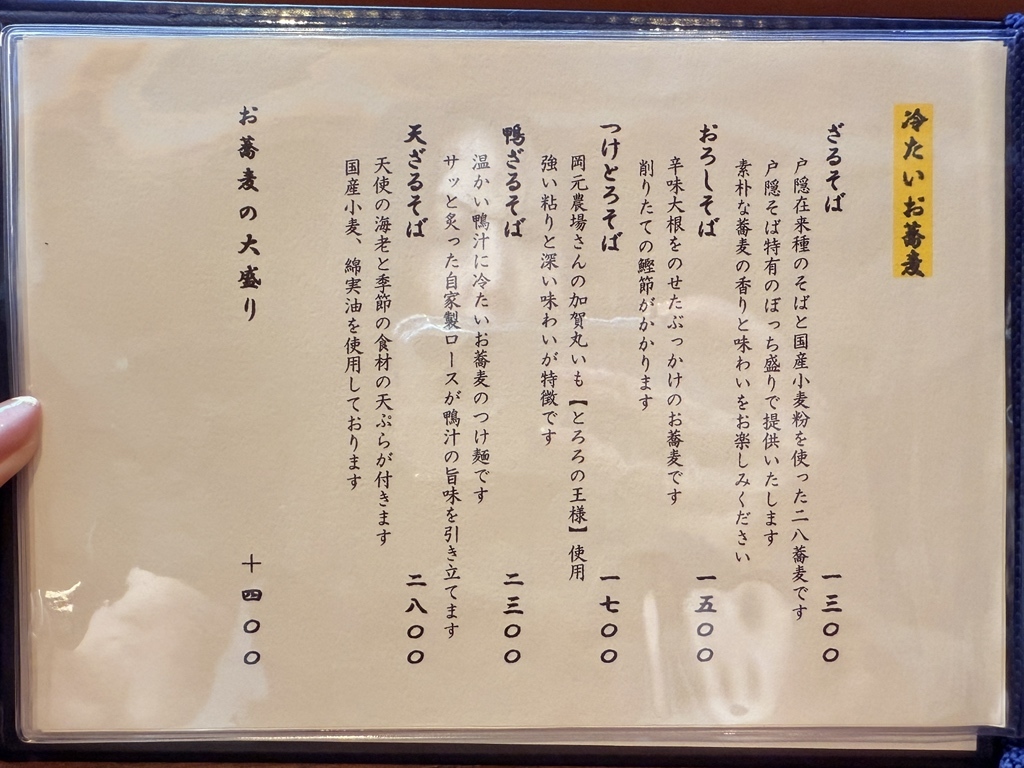 冷たいお蕎麦
ざるそば 一三〇〇
戸隠在来種のそばと国産小麦粉を使った二八蕎麦です
戸隠そば特有のぼっち盛りで提供いたします
素朴な蕎麦の香りと味わいをお楽しみください
おろしそば 一五〇〇
辛味大根をのせたぶっかけのお蕎麦です
削りたての鰹節がかかります
つけとろそば 一七〇〇
岡元農場さんの加賀丸いも【とろろの王様】使用
強い粘りと深い味わいが特徴です
鴨ざるそば 二三〇〇
温かい鴨汁に冷たいお蕎麦のつけ麺です
サッと炙った自家製ロースが鴨汁の旨味を引き立てます
天ざるそば 二八〇〇
天使の海老と季節の食材の天ぷらが付きます
国産小麦、綿実油を使用しております
お蕎麦の大盛り ＋四〇〇